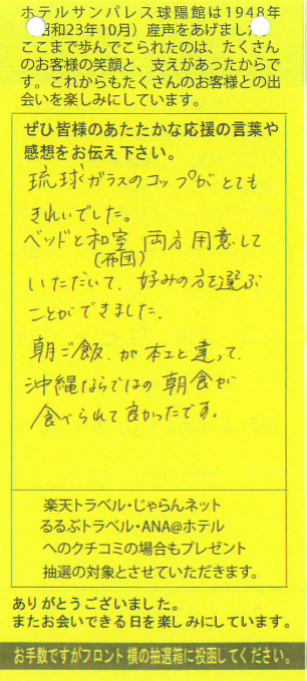 ホテルサンパレス球陽館は1948年
昭和23年10月）産声をあげました
ここまで歩んでこられたのは、たくさん
のお客様の笑顔と、支えがあったからで
す。これからもたくさんのお客様との出
会いを楽しみにしています。
ぜひ皆様のあたたかな応援の言葉や
感想をお伝え下さい。
琉球ガラスのコップがとても
きれいでした。
ベッドと和室 両方用意して
(布団)
いただいて、好みの方を選ぶ
ことができました。
朝ご飯が本土と違って、
沖縄ならではの朝食が
食べられて良かったです。
楽天トラベル・じゃらんネット
るるぶトラベル・ANA@ホテル
へのクチコミの場合もプレゼント
抽選の対象とさせていただきます。
ありがとうございました。
またお会いできる日を楽しみにしています。
お手数ですがフロント横の抽選箱に投函してください。